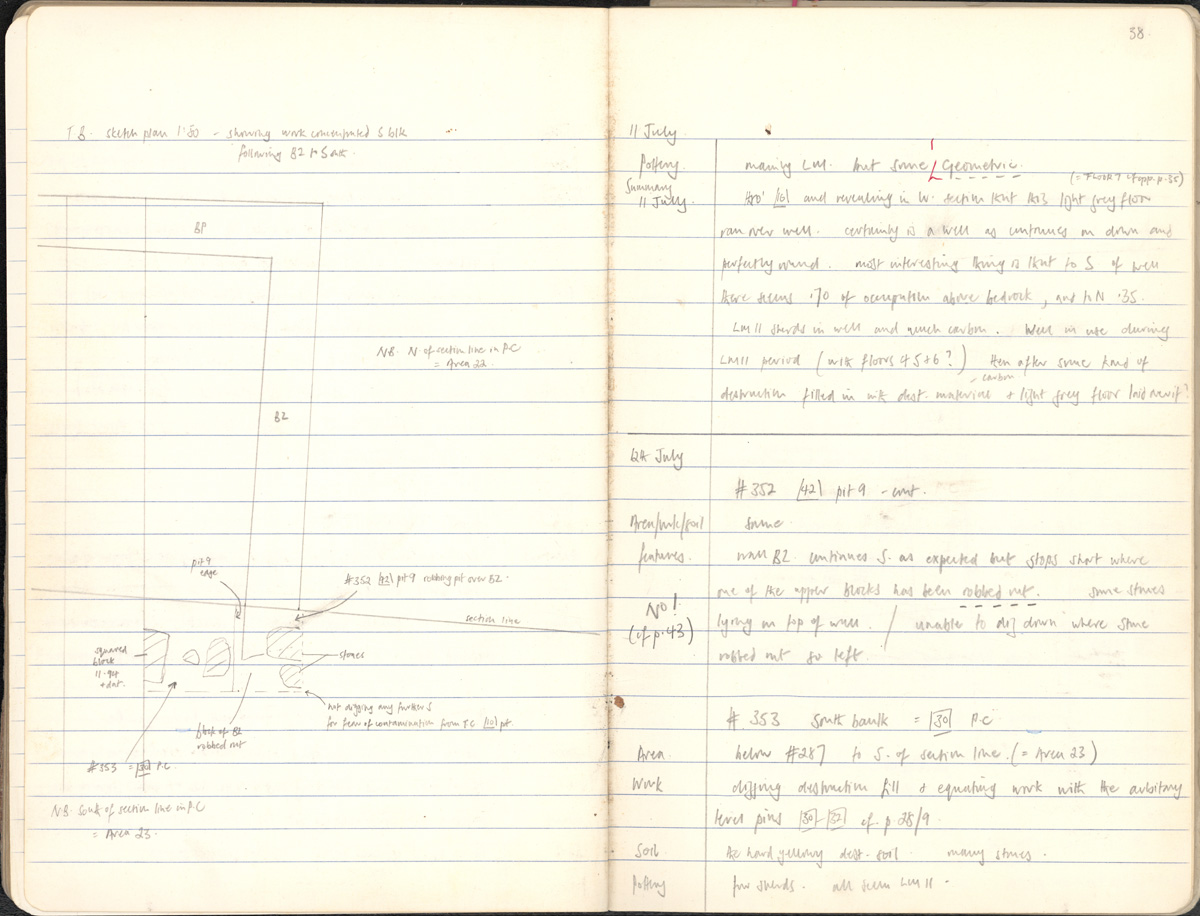 T.B. sketch plan 1:50 - showing work concentrated S blk
following B2 to S
BP
N.B. N. of section line in P.C
= Area 22.
B2
pit 9
edge
#352 42 pit 9 robbing pit over B2.
section line
squared
block
stones
not digging any further S
for fear of contamination from T.C 10 pt.
block of B2
robbed out
#353 = 30 P.C.
N.B. South of section line in P.C
= Area 23.
38.
11 July
Pottery. mainly LM. but some Geometric.
(= FLOOR 7 cf opp. p. 35)
Summary
11 July. 16 and revealing in W. section that this light grey floor
ran over well. certainly is a well as continues on down and
perfectly round. most interesting thing is that to S of well
there seems .70 of occupation above bedrock, and to N .35.
LM II sherds in well and much carbon. Well in use during
LM II period (with floors 4 5 + 6?) then after some kind of
carbon
destruction filled in with dest. material + light grey floor laid over it?
12th July
#352 42 pit 9 - cont.
Area/wk/soil same.
features. wall B2. continues S. as expected but stops short where
one of the upper blocks has been robbed out. some stones
No!
(cf p. 43) lying on top of wall. / unable to dig down where stone
robbed out so left.
#353 South baulk = 30 P.C
Area below #287 to S. of section line. (= Area 23)
Work digging destruction fill + equating work with the arbitrary
level pins 30 - 32 cf. p 28/9.
Soil. the hard yellowy dest. soil. many stones.
Pottery few sherds. all seem LM II -